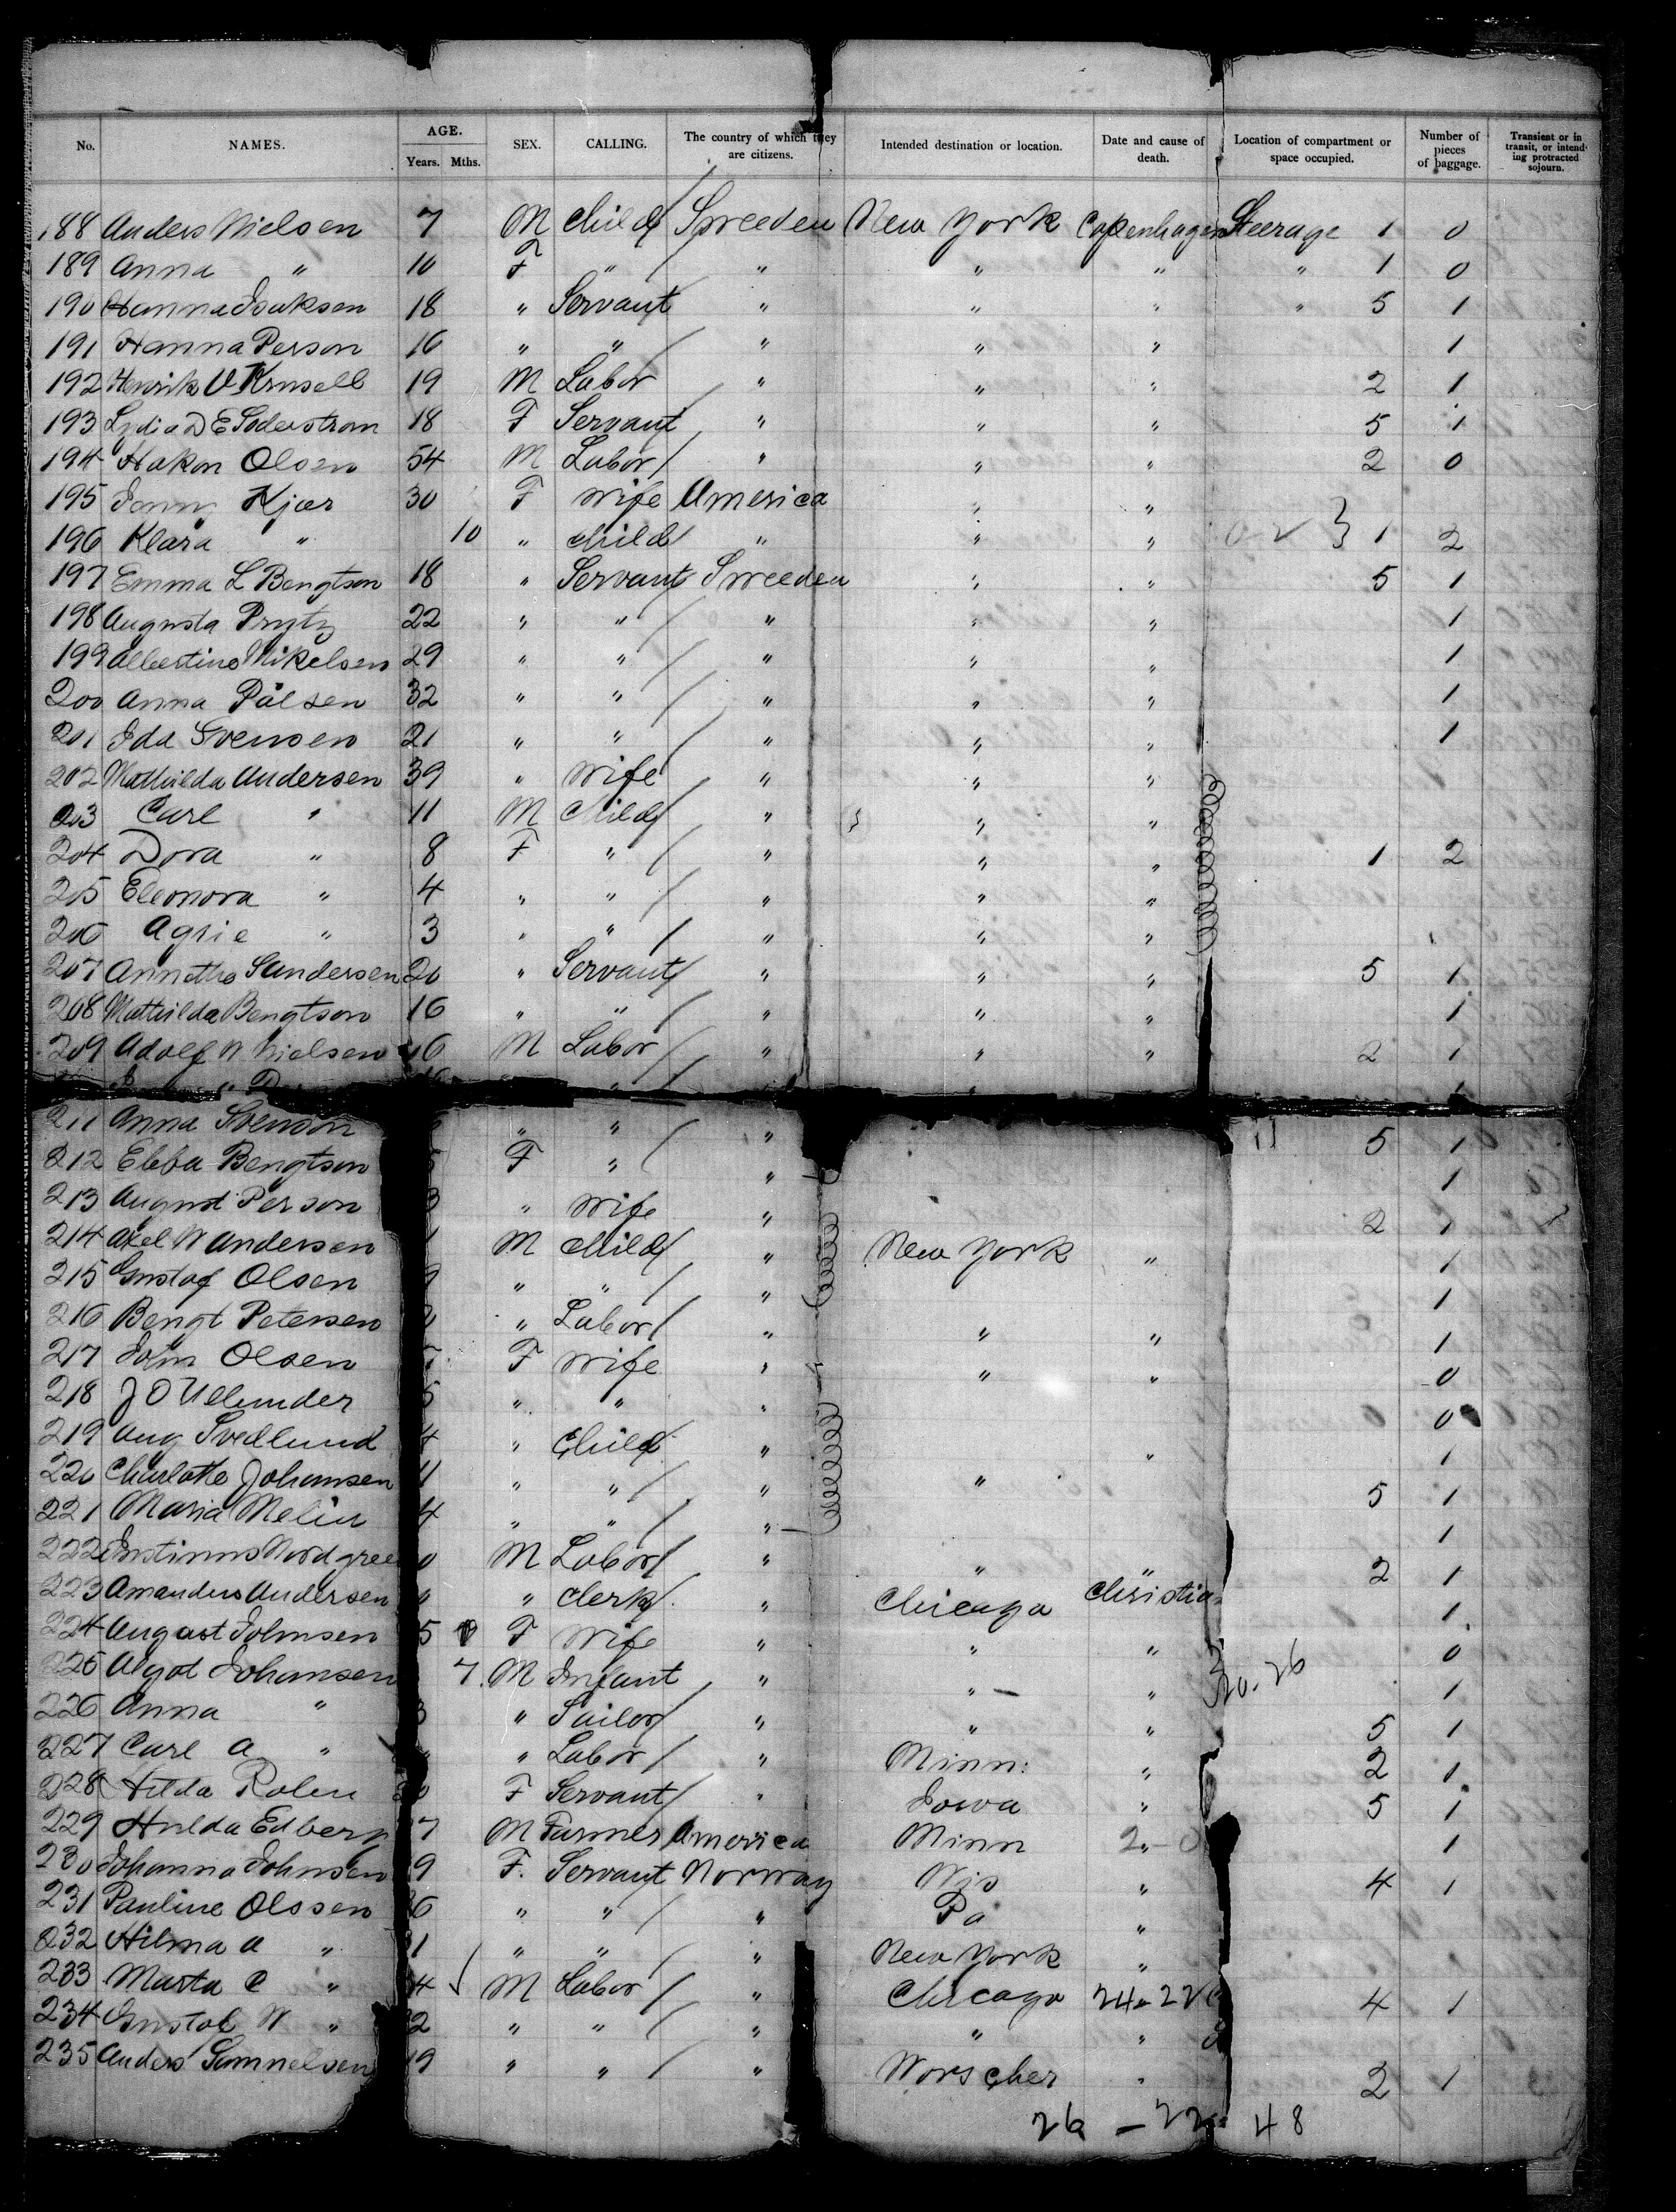 No. NAMES. AGE. Years. Mths. SEX. CALLING. The country of which they are citizens. Intended destination or location. Date and cause of death. Location of compartment or space occupied. Number of pieces of baggage. Transient or in transit, or intending protracted sojourn.
188 Anders Nielsen 7 M Child Sweeden New York Copenhagen Steerage 1 0
189 Anna " 10 F " " " " " 1 0
190 Hanna Isaksen 18 " Servant " " " " 5 1
191 Hanna Person 16 " " " " " 1
192 Henrik V Krusell 19 M Labor " " " 2 1
193 Lydia D E Soderstrom 18 F Servant " " " 5 1
194 Hakon Olsen 54 M Labor " " " 2 0
195 Kjær 30 F Wife America " "
196 Klara " 10 " Child " " " 1 2
197 Emma L Bengtson 18 " Servant Sweeden " " 5 1
198 Augusta Prytz 22 " " " " " 1
199 Albertine Mikelsen 29 " " " " " 1
200 Anna Pålsen 32 " " " " " 1
201 Ida Svensen 21 " " " " " 1
202 Mathilda Andersen 39 " Wife " " "
203 Carl " 11 M Child " " "
204 Dora " 8 F " " " " 1 2
205 Eleonora " 4 " " " " "
206 " 3 " " " " "
207 Annetha Sandersen 20 " Servant " " " 5 1
208 Mathilda Bengtson 16 " " " " " 1
209 Adolf W Nielsen 16 M Labor " " " 2 1
211 Anna Svenson " " " 5 1
212 Ebba Bengtson F " " 1
213 August Person " Wife " 2 1
214 Axel W Andersen M Child " New York " 1
215 Gustaf Olsen " " " 1
216 Bengt Petersen " Labor " " " 1
217 John Olsen F Wife " " " 0
218 J O 5 " " " 0
219 Aug Svedlund 4 " Child " " 1
220 Charlotte Johansen " " " " 5 1
221 Maria Melin 4 " " " 1
222 Nordgree 0 M Labor " " " 2 1
223 Amanders Andersen " Clerk " Chicago Christia 1
224 August Johnsen 5 F Wife " " " 0
225 Algot Johansen 7 M Infant " " " 1
226 Anna " 3 " Sailor " " " 5 1
227 Carl A " " Labor " Minn: " 2 1
228 Hilda Rolin F Servant " Iowa " 5 1
229 Hulda Edberg 7 M Farmer America Minn 1
230 Johanna Johnsen 9 F. Servant Norway Wis " 4 1
231 Pauline Olssen 6 " " " Pa "
232 Hilma A " 1 " " " New York "
233 Marta C " 4 M Labor " Chicago 24-22 4 1
234 Gustaf W " 2 " " " " "
235 Anders Samuelsen 19 " " " Worscher " 2 1
26 - 22 48